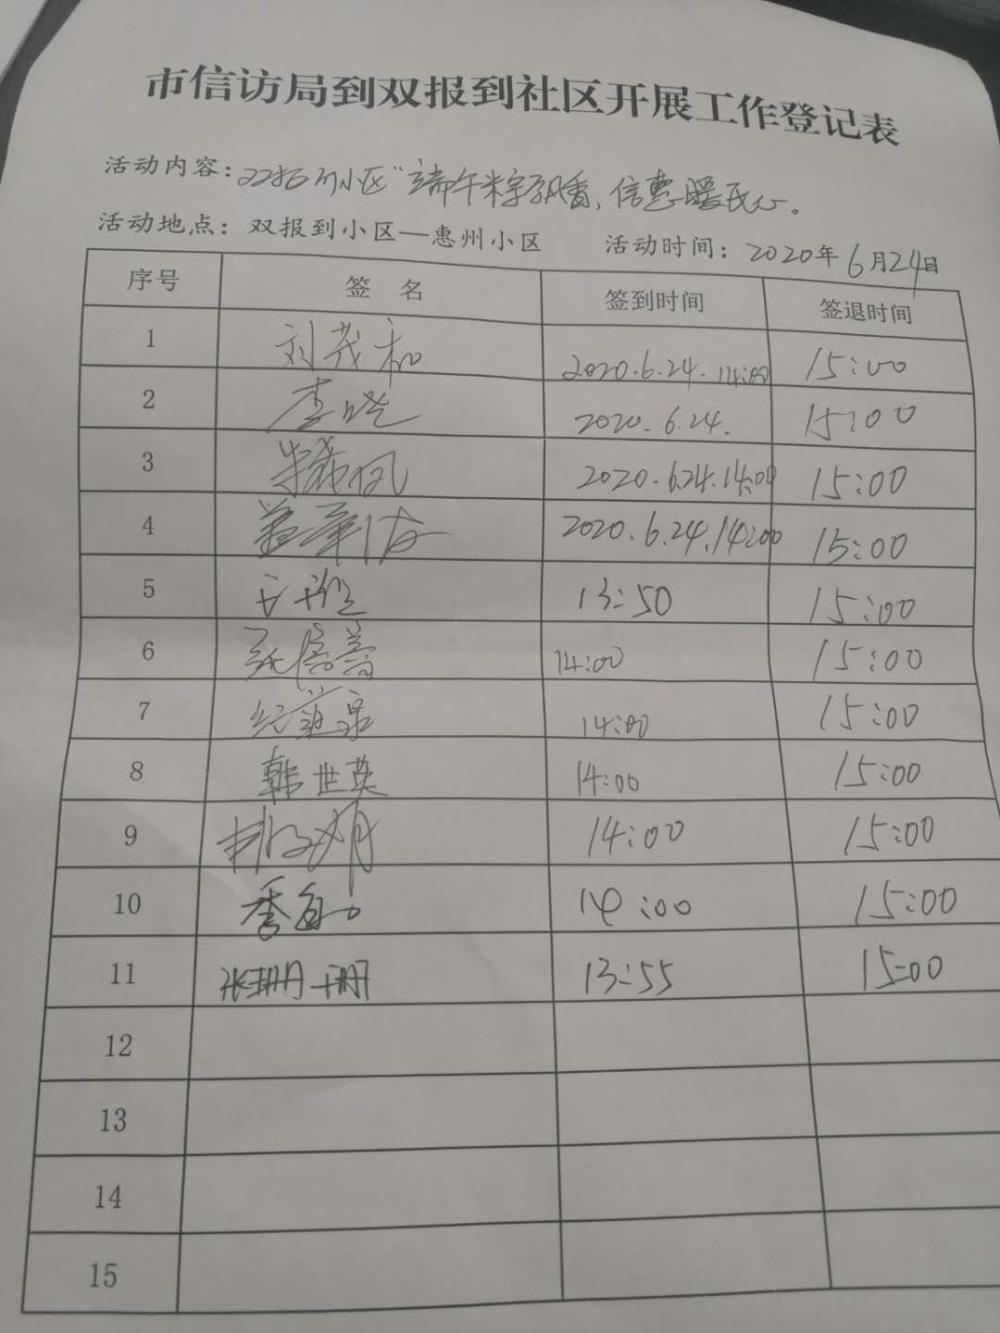 市信访局到双报到社区开展工作登记表
活动内容：双报到小区“端午粽子飘香，信惠暖民心。
活动地点：双报到小区—惠州小区 活动时间：2020年6月24日
序号 签 名 签到时间 签退时间
1 刘茂和 2020.6.24.14:00 15:00
2 李晓 2020.6.24. 15:00
3 2020.6.24.14:00 15:00
4 2020.6.24.14:00 15:00
5 13:50 15:00
6 14:00 15:00
7 14:00 15:00
8 韩世英 14:00 15:00
9 14:00 15:00
10 14:00 15:00
11 张珊珊 13:55 15:00
12
13
14
15